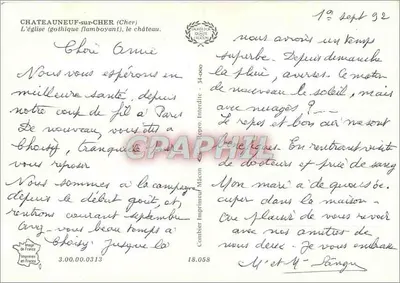 CHATEAUNEUF-sur-CHER (Cher)
L'église (gothique flamboyant), le château.
Chère Amie
Nous vous espérons en
meilleure santé depuis
notre coup de fil à Paris
De nouveau, vous êtes à
Choisy, tranquille
vous reposer
Nous sommes à la campagne
depuis le début août, et
rentrons courant septembre
Avez-vous beau temps à
Choisy. Jusque là
3.00.00.0313
18.058
Combier Imprimeur Mâcon
Interdite - 34-000
1er sept 92
nous avions un temps
superbe. Depuis dimanche
la pluie, averses. Ce matin
de nouveau le soleil, mais
avec nuages ? --
Le repos et bon air ne sont
En rentrant visite
de docteurs et prise de sang
Mon mari a de quoi s'oc-
cuper dans la maison -
Au plaisir de vous revoir
avec nos amitiés de
nous deux - Je vous embrasse
Mr et Mme
GRAPHIL